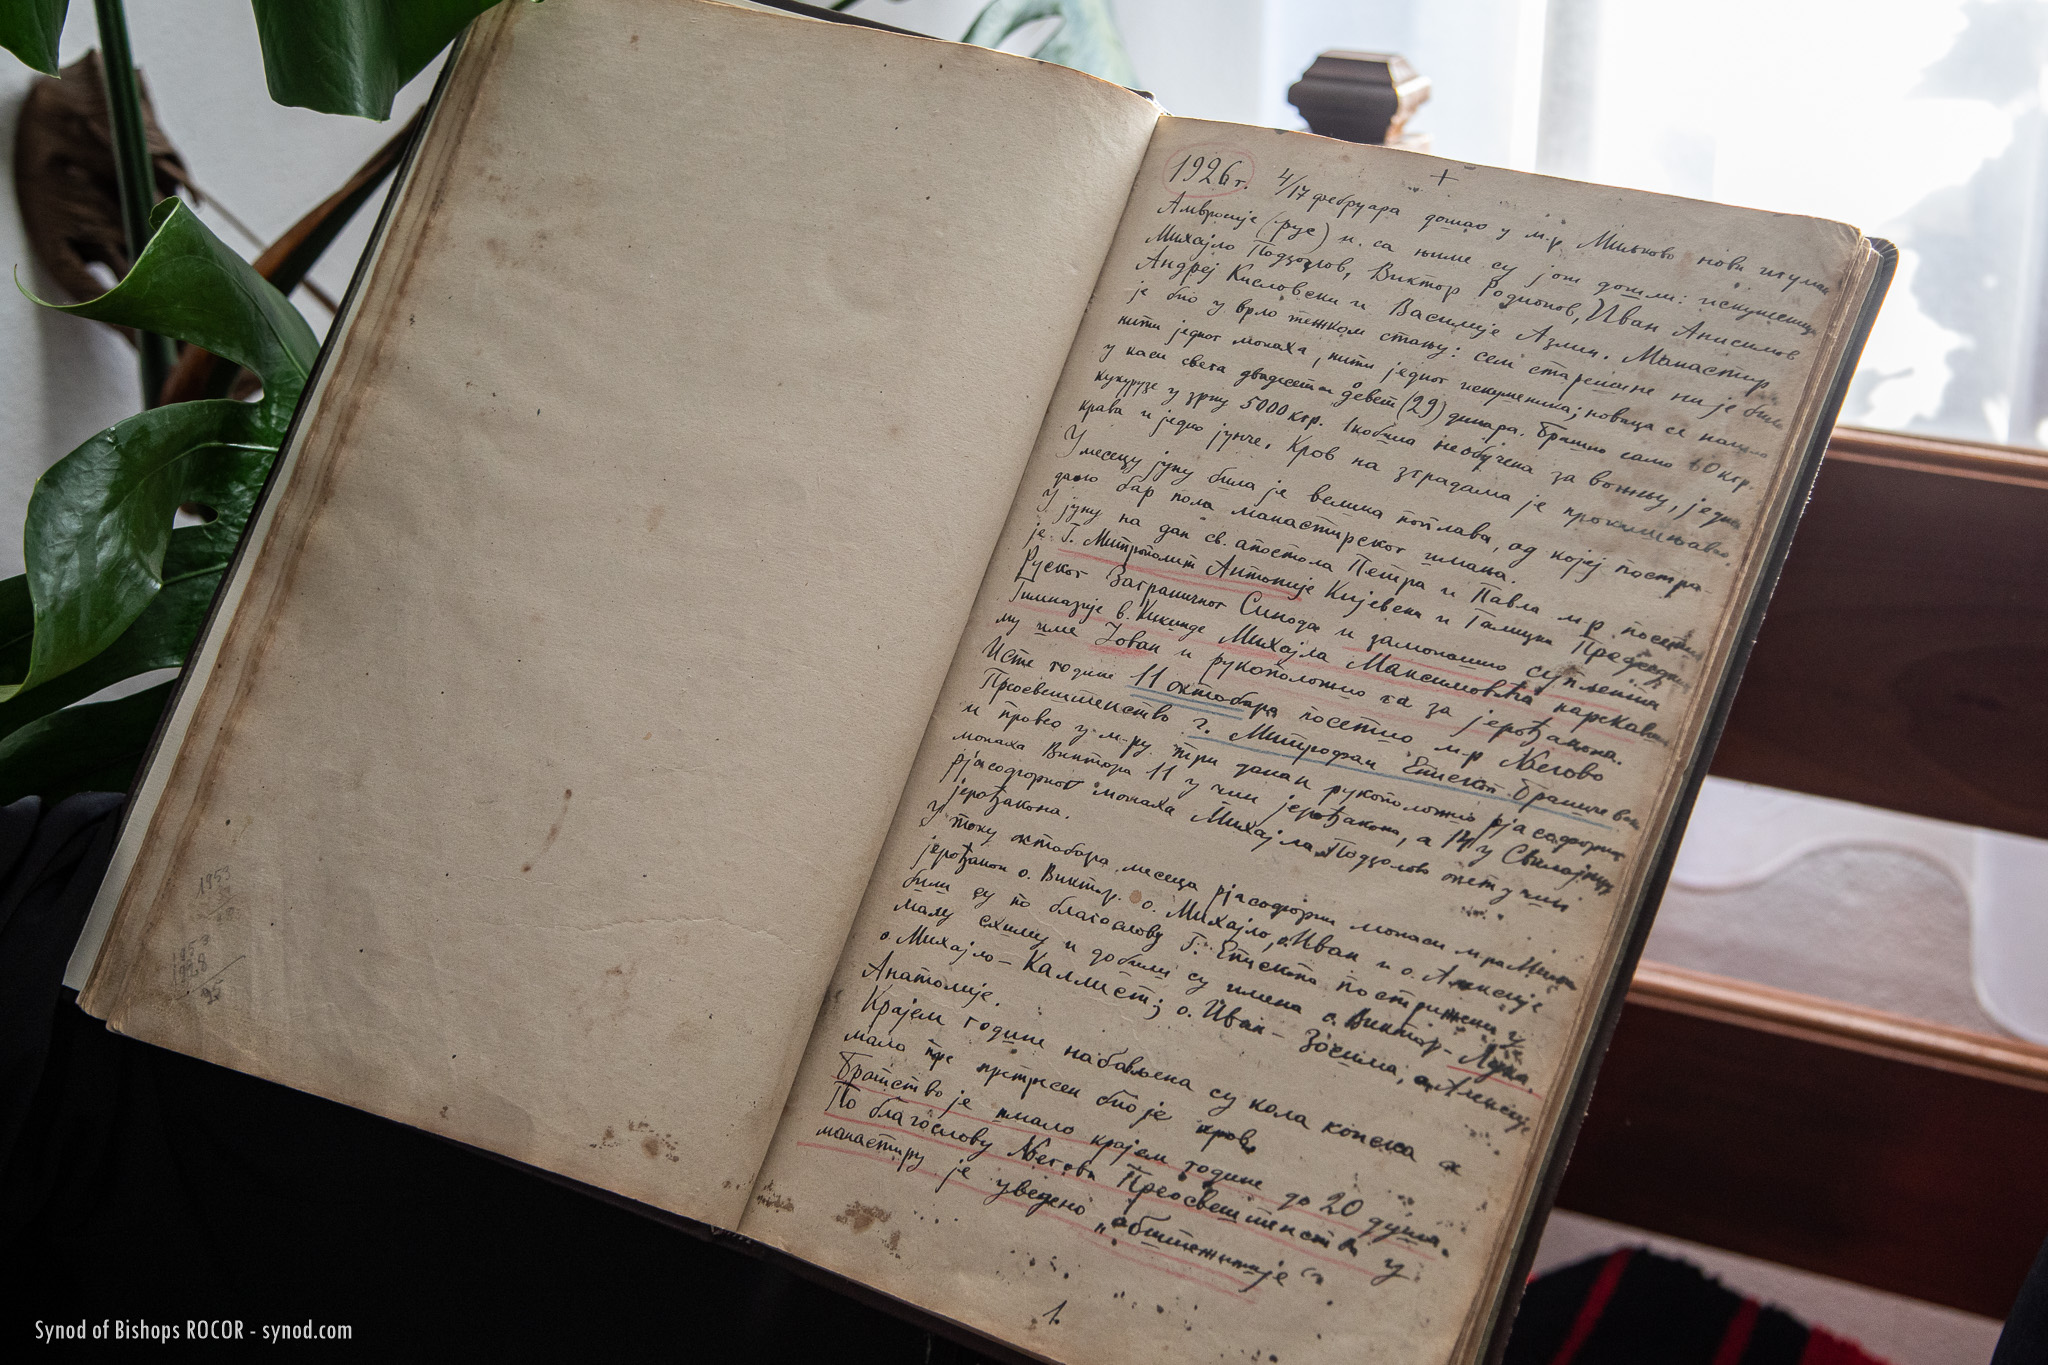 +
1926 г. 4/17 фебруара дошао у м-р Миљково нови игуман
Амвросије (рус) и са њиме су још дошли: искушеници
Михајло Подзолов, Виктор Родионов, Иван Анисимов
Андреј Кисловски и Василије Азлин. Манастир
је био у врло тежком стању: сем старешине није било
нити једног монаха, нити једног искушеника; новаца се нашло
у каси свега двадесет и девет (29) динара. Брашно само 60 кгр.
кукурузе у зрну 5000 кгр. 1 кобила необучена за вожњу, једна
крава и једно јунче. Кров на зградама је прокишњавао.
У месецу јуну била је велика поплава, од којеј постра-
дало бар пола манастирског имања.
У јуну на дан св. апостола Петра и Павла м-р посетио
је Г. Митрополит Антоније Кијевски и Галицки Председник
Руског Заграничног Синода и замонашио суплента
Гимназије в. Кикинде Михајла Максимовића нарекавши
му име Јован и рукоположио га за јерођакона.
Исте године 11 октобра посетио м-р Његово
Преосвештенство г. Митрофан Епископ Браничевски
и провео у м-ру три дана и рукоположио рјасофорног
монаха Виктора 11 у чин јерођакона, а 14 у Свилајнцу
рјасофорног монаха Михајла Подзолова опет у чин
јерођакона.
У току октобра месеца рјасофорни монаси м-ра
јерођакон о. Виктор. о. Михајло, о. Иван и о. Алексије
били су по благослову Г. Епископа пострижени у
малу схиму и добили су имена о. Виктор - Лука.
о. Михајло - Каллист; о. Иван - Зосима, а Алексије
Анатолије.
Крајем године набављена су кола конска а
мало пре претресен био је кров.
Братство је имало крајем године до 20 душа.
По благослову Његова Преосвештенства у
манастиру је уведено „абштежитије“
1.
1953
1953
1928
25
Synod of Bishops ROCOR - synod.com